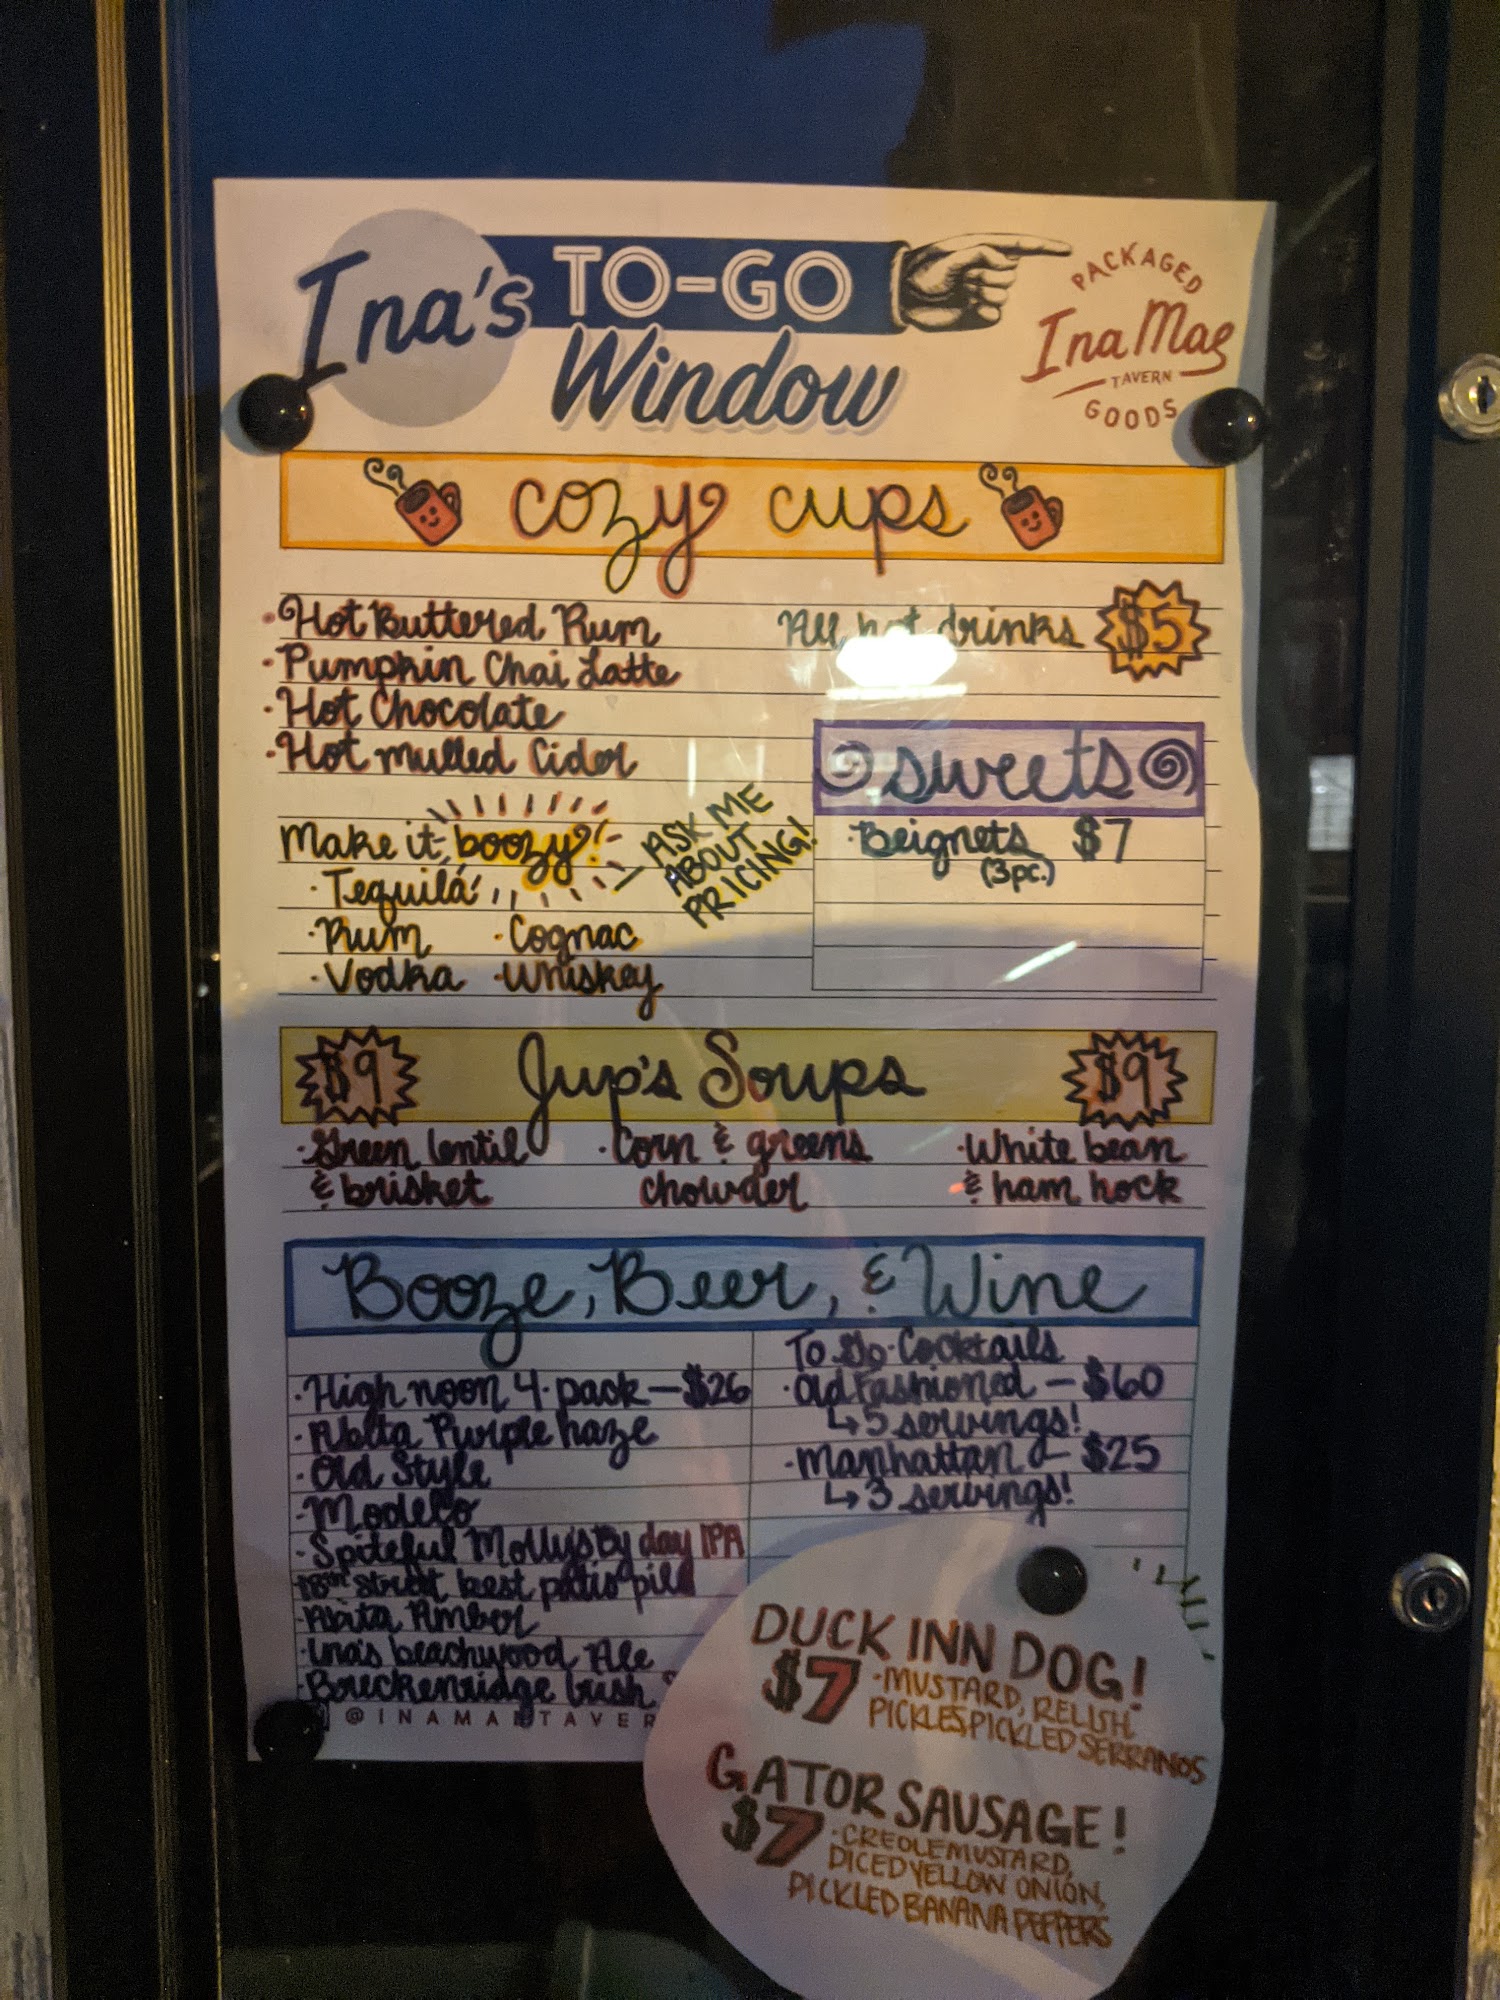 Ina's TO-GO
Window
PACKAGED
Ina Mae
TAVERN
GOODS
cozy cups
·Hot Buttered Rum
·Pumpkin Chai Latte
·Hot Chocolate
·Hot mulled Cider
All hot drinks $5
sweets
·Beignets $7
(3pc.)
Make it boozy!
ASK ME
ABOUT
PRICING!
·Tequila
·Rum ·Cognac
·Vodka ·Whiskey
$9 Jup's Soups $9
·Green lentil
& brisket
·Corn & greens
chowder
·White bean
& ham hock
Booze, Beer, & Wine
·High noon 4·pack—$26
·Abita Purple haze
·Old Style
·Modelo
·Spiteful Molly's By day IPA
18th street best patio pils
·Abita Amber
·Ina's beachwood Ale
·Breckenridge Irish
To Go Cocktails
·Old Fashioned — $60
↳5 servings!
·Manhattan — $25
↳3 servings!
@INAMAETAVER
DUCK INN DOG!
$7 ·MUSTARD, RELISH
PICKLES, PICKLED SERRANOS
GATOR SAUSAGE!
$7 ·CREOLE MUSTARD,
DICED YELLOW ONION,
PICKLED BANANA PEPPERS